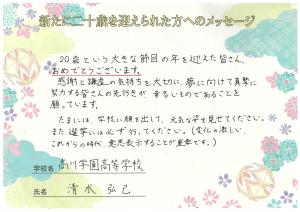 新たに二十歳を迎えられた方へのメッセージ
20歳という大きな節目の年を迎えた皆さん、
おめでとうございます。
感謝と謙虚の気持ちを大切に、夢に向けて真摯に
努力する皆さんの先行きが 幸多いものであることを
願っています。
たまには、学校に顔を出して、元気な姿を見せてください。
また、選挙には必ず行ってください。(変化の激しい
これからの時代、意思表示することが重要です。)
学校名 高川学園高等学校
氏名 清水 弘已